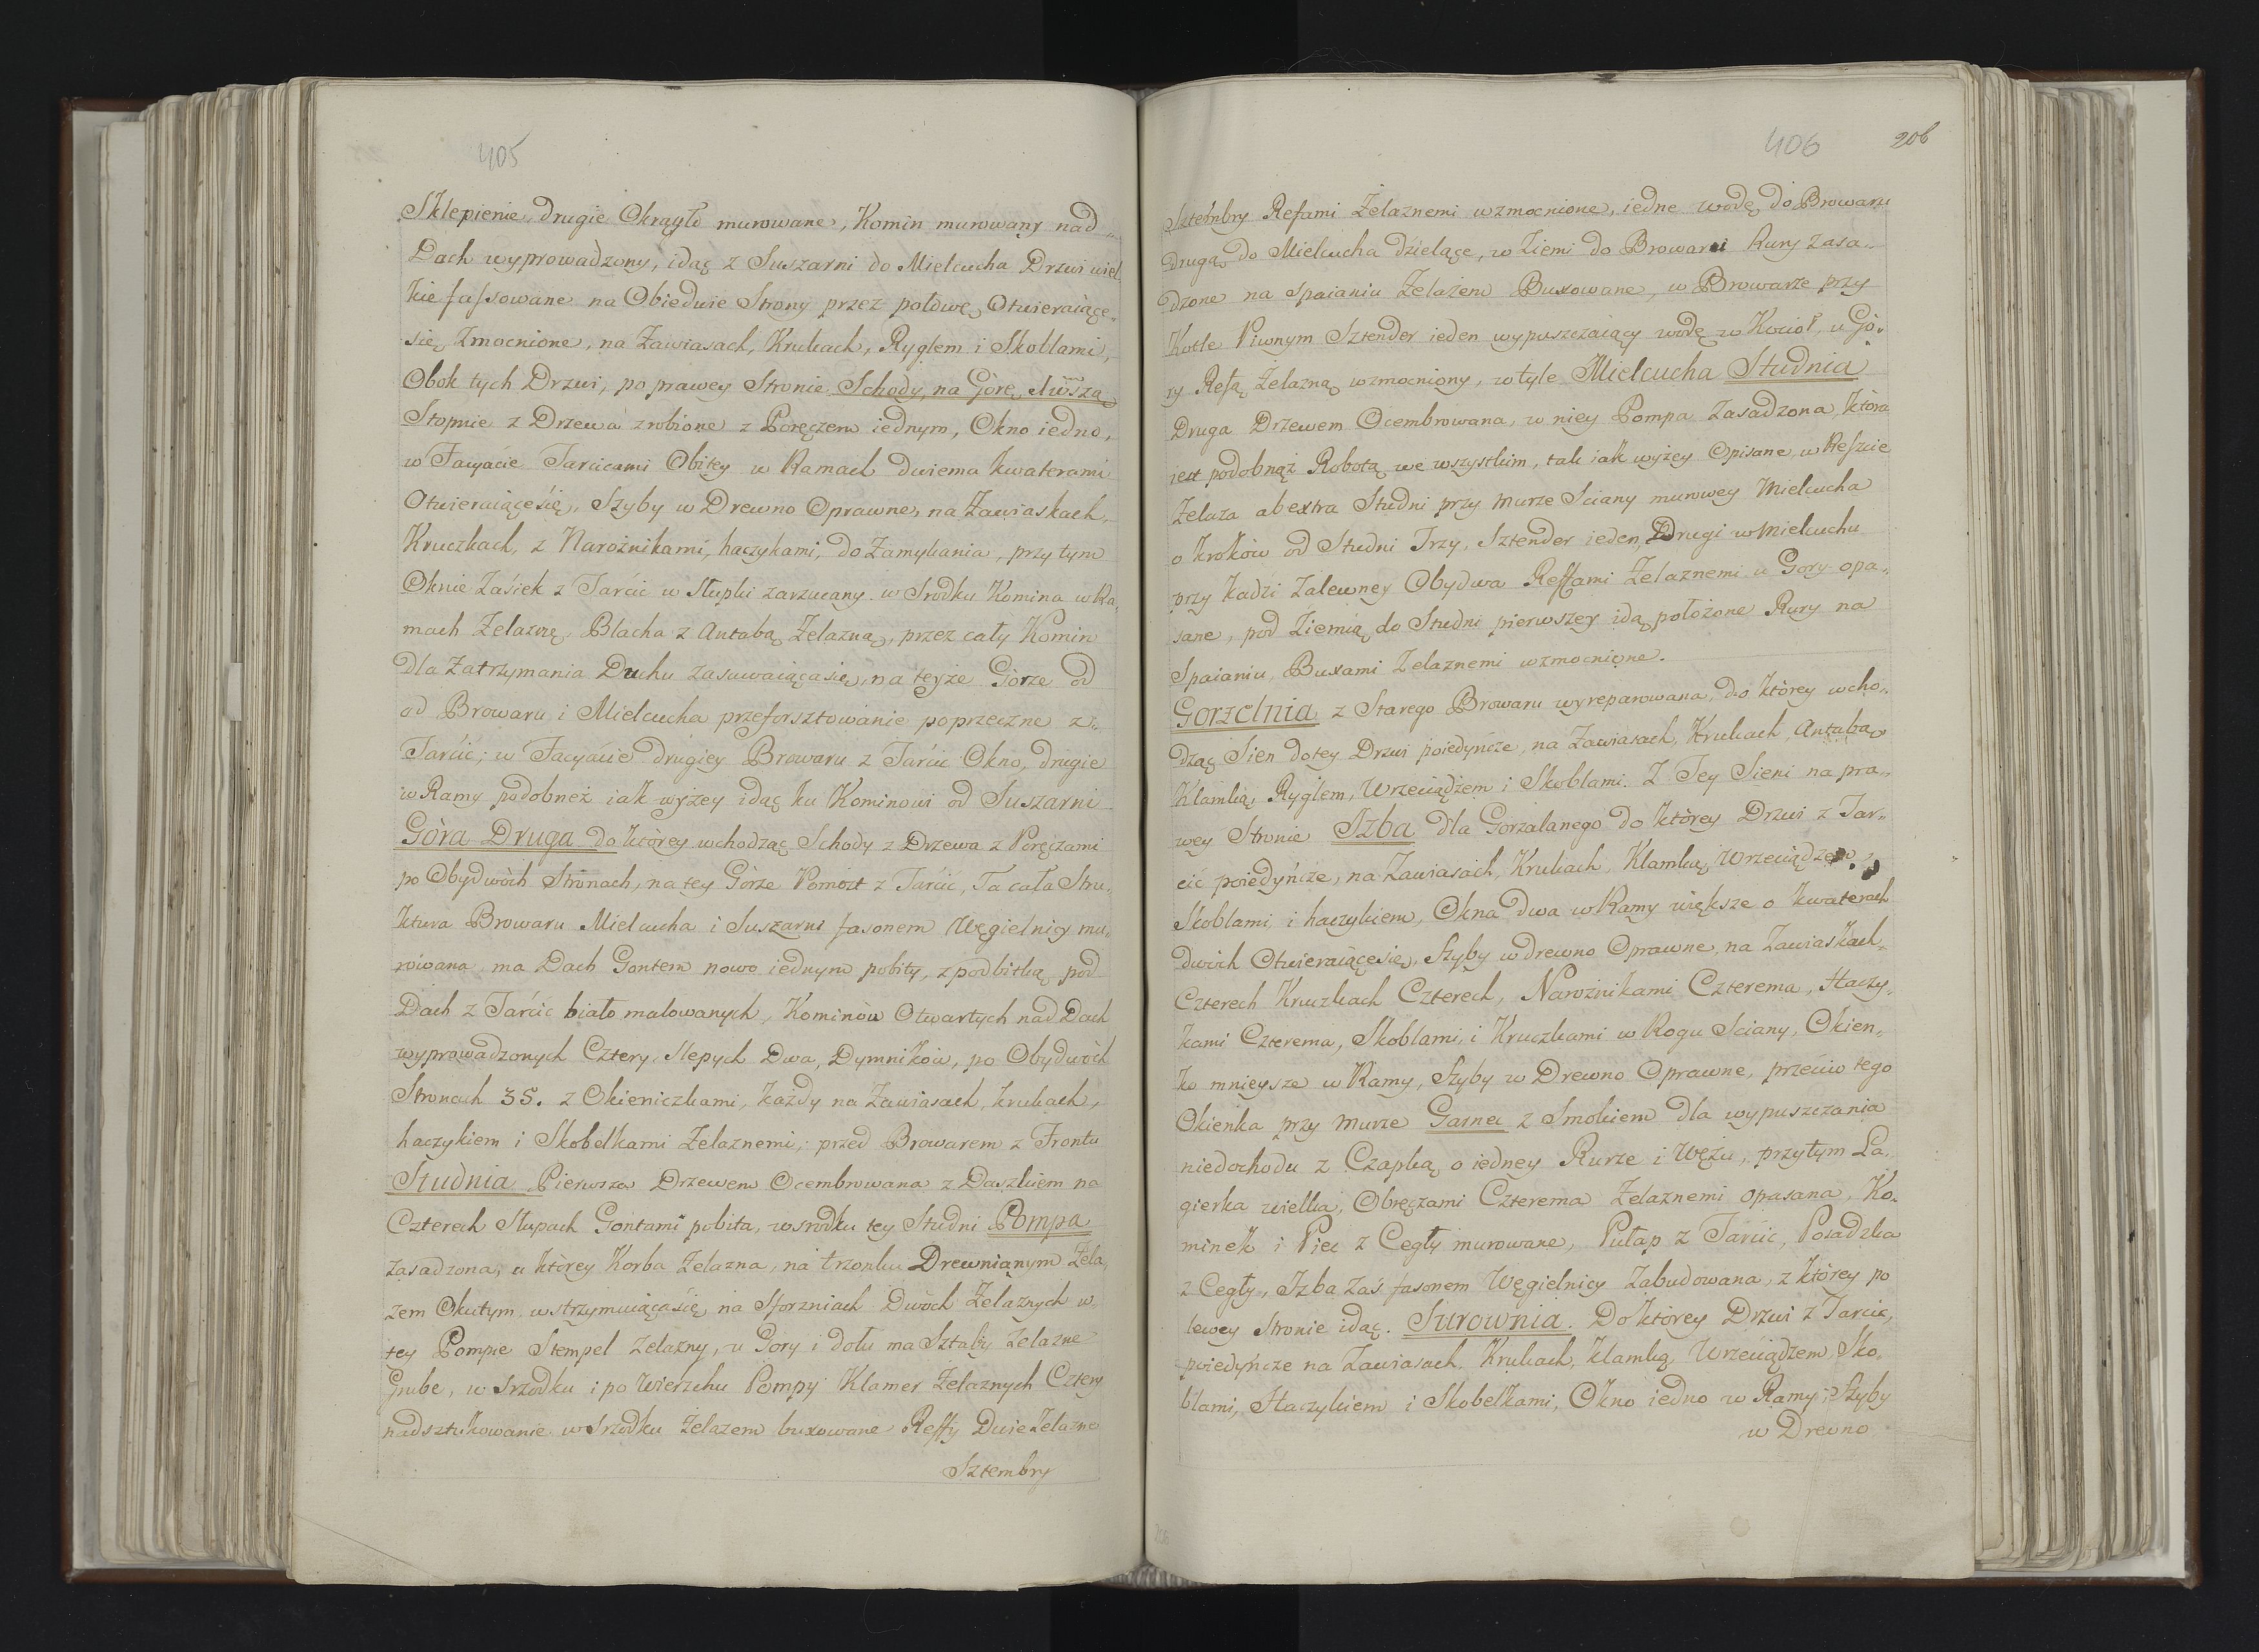 405
Sklepienie, drugie Okrągło murowane, Komin murowany nad
Dach wyprowadzony, idąc z Suszarni do Mielcucha Drzwi wiel
kie fassowane na Obiedwie Strony przez połowę Otwieraiące
się, Zmocnione, na Zawiasach, Krukach, Ryglem i Skoblami,
Obok tych Drzwi, po prawey Stronie Schody na Górę
Stopnie z Drzewa zrobione z Poręczem iednym, Okno iedno,
w Facyacie Tarcicami Obitey w Ramach dwiema kwaterami
Otwieraiące się, Szyby w Drewno Oprawne, na Zawiaskach,
Kruczkach, z Narożnikami, haczykami, do Zamykania, przy tym
Oknie Zasiek z Tarcic w Słupki zarzucany. w Srodku Komina w Ra,
mach Zelazną, Blacha z Antabą Zelazną, przez cały Komin
dla Zatrzymania Duchu zasuwaiąca się, na teyże Górze od
od Browaru i Mielcucha przeforsztowanie poprzeczne z
Tarcic; w Facyacie drugiey Browaru z Tarcic Okno, drugie
w Ramy podobneż iak wyżey idąc ku Kominowi od Suszarni
Góra Druga do którey wchodząc Schody z Drzewa z Poręczami
po Obydwóch Stronach, na tey Górze Pomost z Tarcic, Ta cała Stru,
ktura Browaru Mielcucha i Suszarni fasonem Węgielnicy mu,
rowana ma Dach Gontem nowo iednym pobity, z podbitką pod
Dach z Tarcic biało malowanych, Kominów Otwartych nad Dach
wyprowadzonych Cztery, slepych Dwa, Dymników, po Obydwóch
Stronach 35. z Okieniczkami, każdy na Zawiasach, krukach,
haczykiem i Skobelkami Zelaznemi, przed Browarem z Frontu
Studnia Pierwsza Drzewem Ocembrowana z Daszkiem na
Czterech Słupach Gontami pobita, w srodku tey Studni Pompa
zasadzona, u którey Korba Zelazna, na trzonku Drewnianym Żela,
zem Okutym wstrzymuiąca się na Sforzniach Dwóch Zelaznych w
tey Pompie Stempel żelazny, u Gory i dołu ma Sztaby żelazne
Grube, w Srzodku i po Wierzchu Pompy Klamer Żelaznych Cztery
nadsztukowanie w Srzodku żelazem buxowane Reffy Dwie Żelazne
Sztembry
406 206
Sztembry Refami Żelaznemi wzmocnione, iedne wodę do Browaru
drugą do Mielcucha dzielące, w Ziemi do Browaru Rury Zasa,
dzone na spaianiu Żelazem Buxowane, w Browarze przy
Kotle Piwnym Sztender ieden wypuszczaiący wodę w Kocioł, u Gó,
ry Refą Żelazną wzmocniony, w tyle Mielcucha Studnia
Druga Drzewem Ocembrowana, w niey Pompa Zasadzona, która
iest podobnąż Robotą we wszystkim, tak iak wyżey Opisane, w Reszcie
Żelaza abextra Studni przy murze Sciany murowey Mielcucha
o kroków od Studni Trzy, Sztender ieden, Drugi w Mielcuchu
przy kadzi Zalewney Obydwa Reffami Żelaznemi u Gory opa,
sane, pod Ziemią do Studni pierwszey idą położone Rury na
Spaianiu, Buxami Zelaznemi wzmocnione.
Gorzelnia z Starego Browaru wyreparowana, do którey wcho,
dząc Sien do tey Drzwi poiedyńcze, na Zawiasach, Krukach, Antabą
Klamką, Ryglem, Wrzeciądzem i Skoblami. Z Tey Sieni na pra,
wey Stronie Izba dla Gorzalanego do którey Drzwi z Tar,
cic poiedyńcze, na Zawiasach, Krukach, Klamką, Wrzeciądzem,
Skoblami, i haczykiem, Okna dwa w Ramy większe o kwaterach
dwóch Otwieraiące się, Szyby w drewno Oprawne, na Zawiaskach,
Czterech Kruczkach Czterech, Narożnikami Czterema, Haczy,
kami Czterema, Skoblami, i Kruczkami w Rogu Sciany, Okien,
ko mnieysze w Ramy, Szyby w Drewno Oprawne, przeciw tego
Okienka przy murze Garnec z Smokiem dla wypuszczania
niedochodu z Czapką o iedney Rurze i Wężu, przytym La,
gierka wielka, Obręczami Czterema Żelaznemi opasana, Ko,
minek i Piec z Cegły murowane, Pułap z Tarcic, Posadzka
z Cegły, Izba Zaś fasonem Węgielnicy Zabudowana, z którey po
lewey Stronie idąc. Surownia. Do którey Drzwi z Tarcic,
poiedyńcze na Zawiasach, Krukach, klamką, Wrzeciądzem, Sko,
blami, Haczykiem i Skobelkami, Okno iedno w Ramy, Szyby
w Drewno